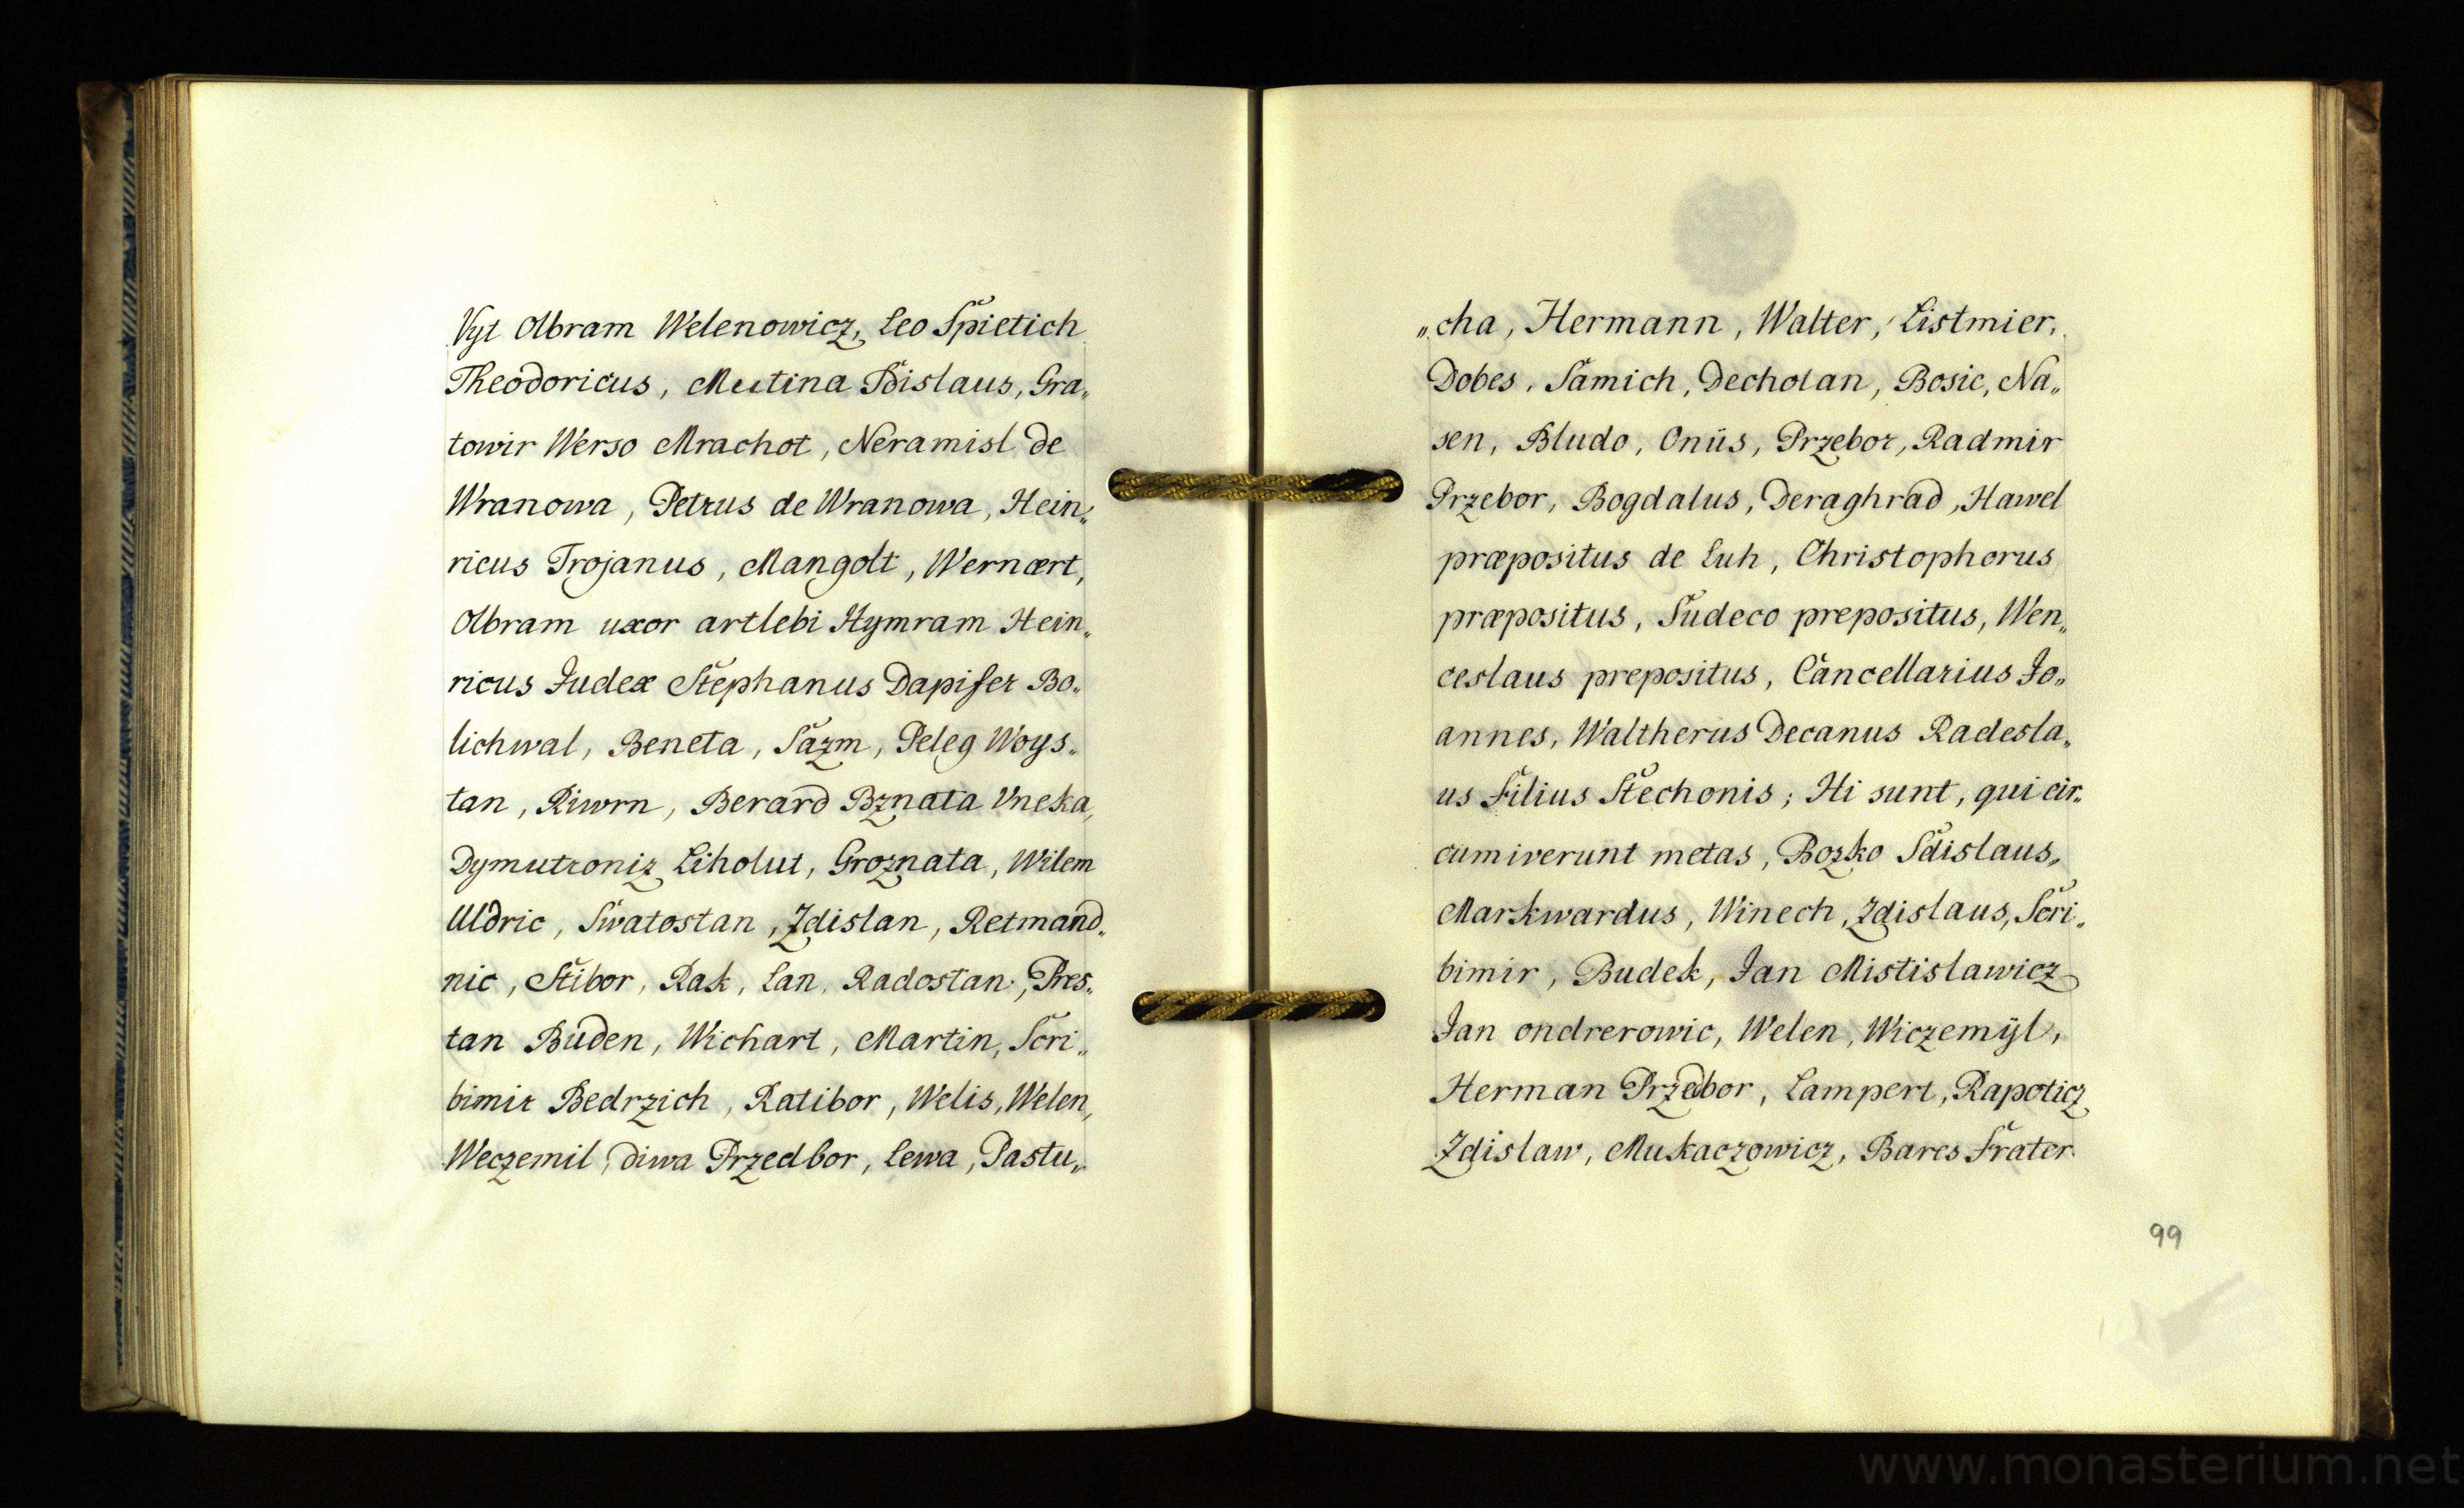 Vyt Olbram Welenowicz, Leo Spietich
Theodoricus, Mutina Sdislaus, Gra„
towir Werso Mrachot, Neramisl de
Wranowa, Petrus de Wranowa, Hein„
ricus Trojanus, Mangolt, Wernært,
Olbram uxor artlebi Hymram Hein„
ricus Judex Stephanus Dapifer Bo„
lichwal, Beneta, Sazm, Peleg Woys„
tan, Riwrn, Berard Bznata Vneka,
Dymutroniz Liholut, Groznata, Wilem
Uldric, Swatostan, Zdislan, Retmand„
nic, Stibor, Rak, Lan, Radostan, Pres„
tan Buden, Wichart, Martin, Scri„
bimir Bedrzich, Ratibor, Welis, Welen,
Weczemil, Diwa Przedbor, Lewa, Pastu„
„cha, Hermann, Walter, Listmier,
Dobes, Samich, Decholan, Bosic, Na„
sen, Bludo, Onüs, Przebor, Radmir
Przebor, Bogdalus, Deraghrad, Hawel
præpositus de Luh, Christophorus
præpositus, Sudeco prepositus, Wen„
ceslaus prepositus, Cancellarius Jo„
annes, Waltherus Decanus Radesla„
us Filius Stechonis; Hi sunt, qui cir„
cumiverunt metas, Bozko Sdislaus,
Markwardus, Winech, Zdislaus, Scri„
bimir, Budek, Jan Mistislawicz
Jan ondrerowic, Welen, Wiczemÿl,
Herman Przedbor, Lampert, Rapoticz
Zdislaw, Mukaczowicz, Bares Frater
99
www.monasterium.net